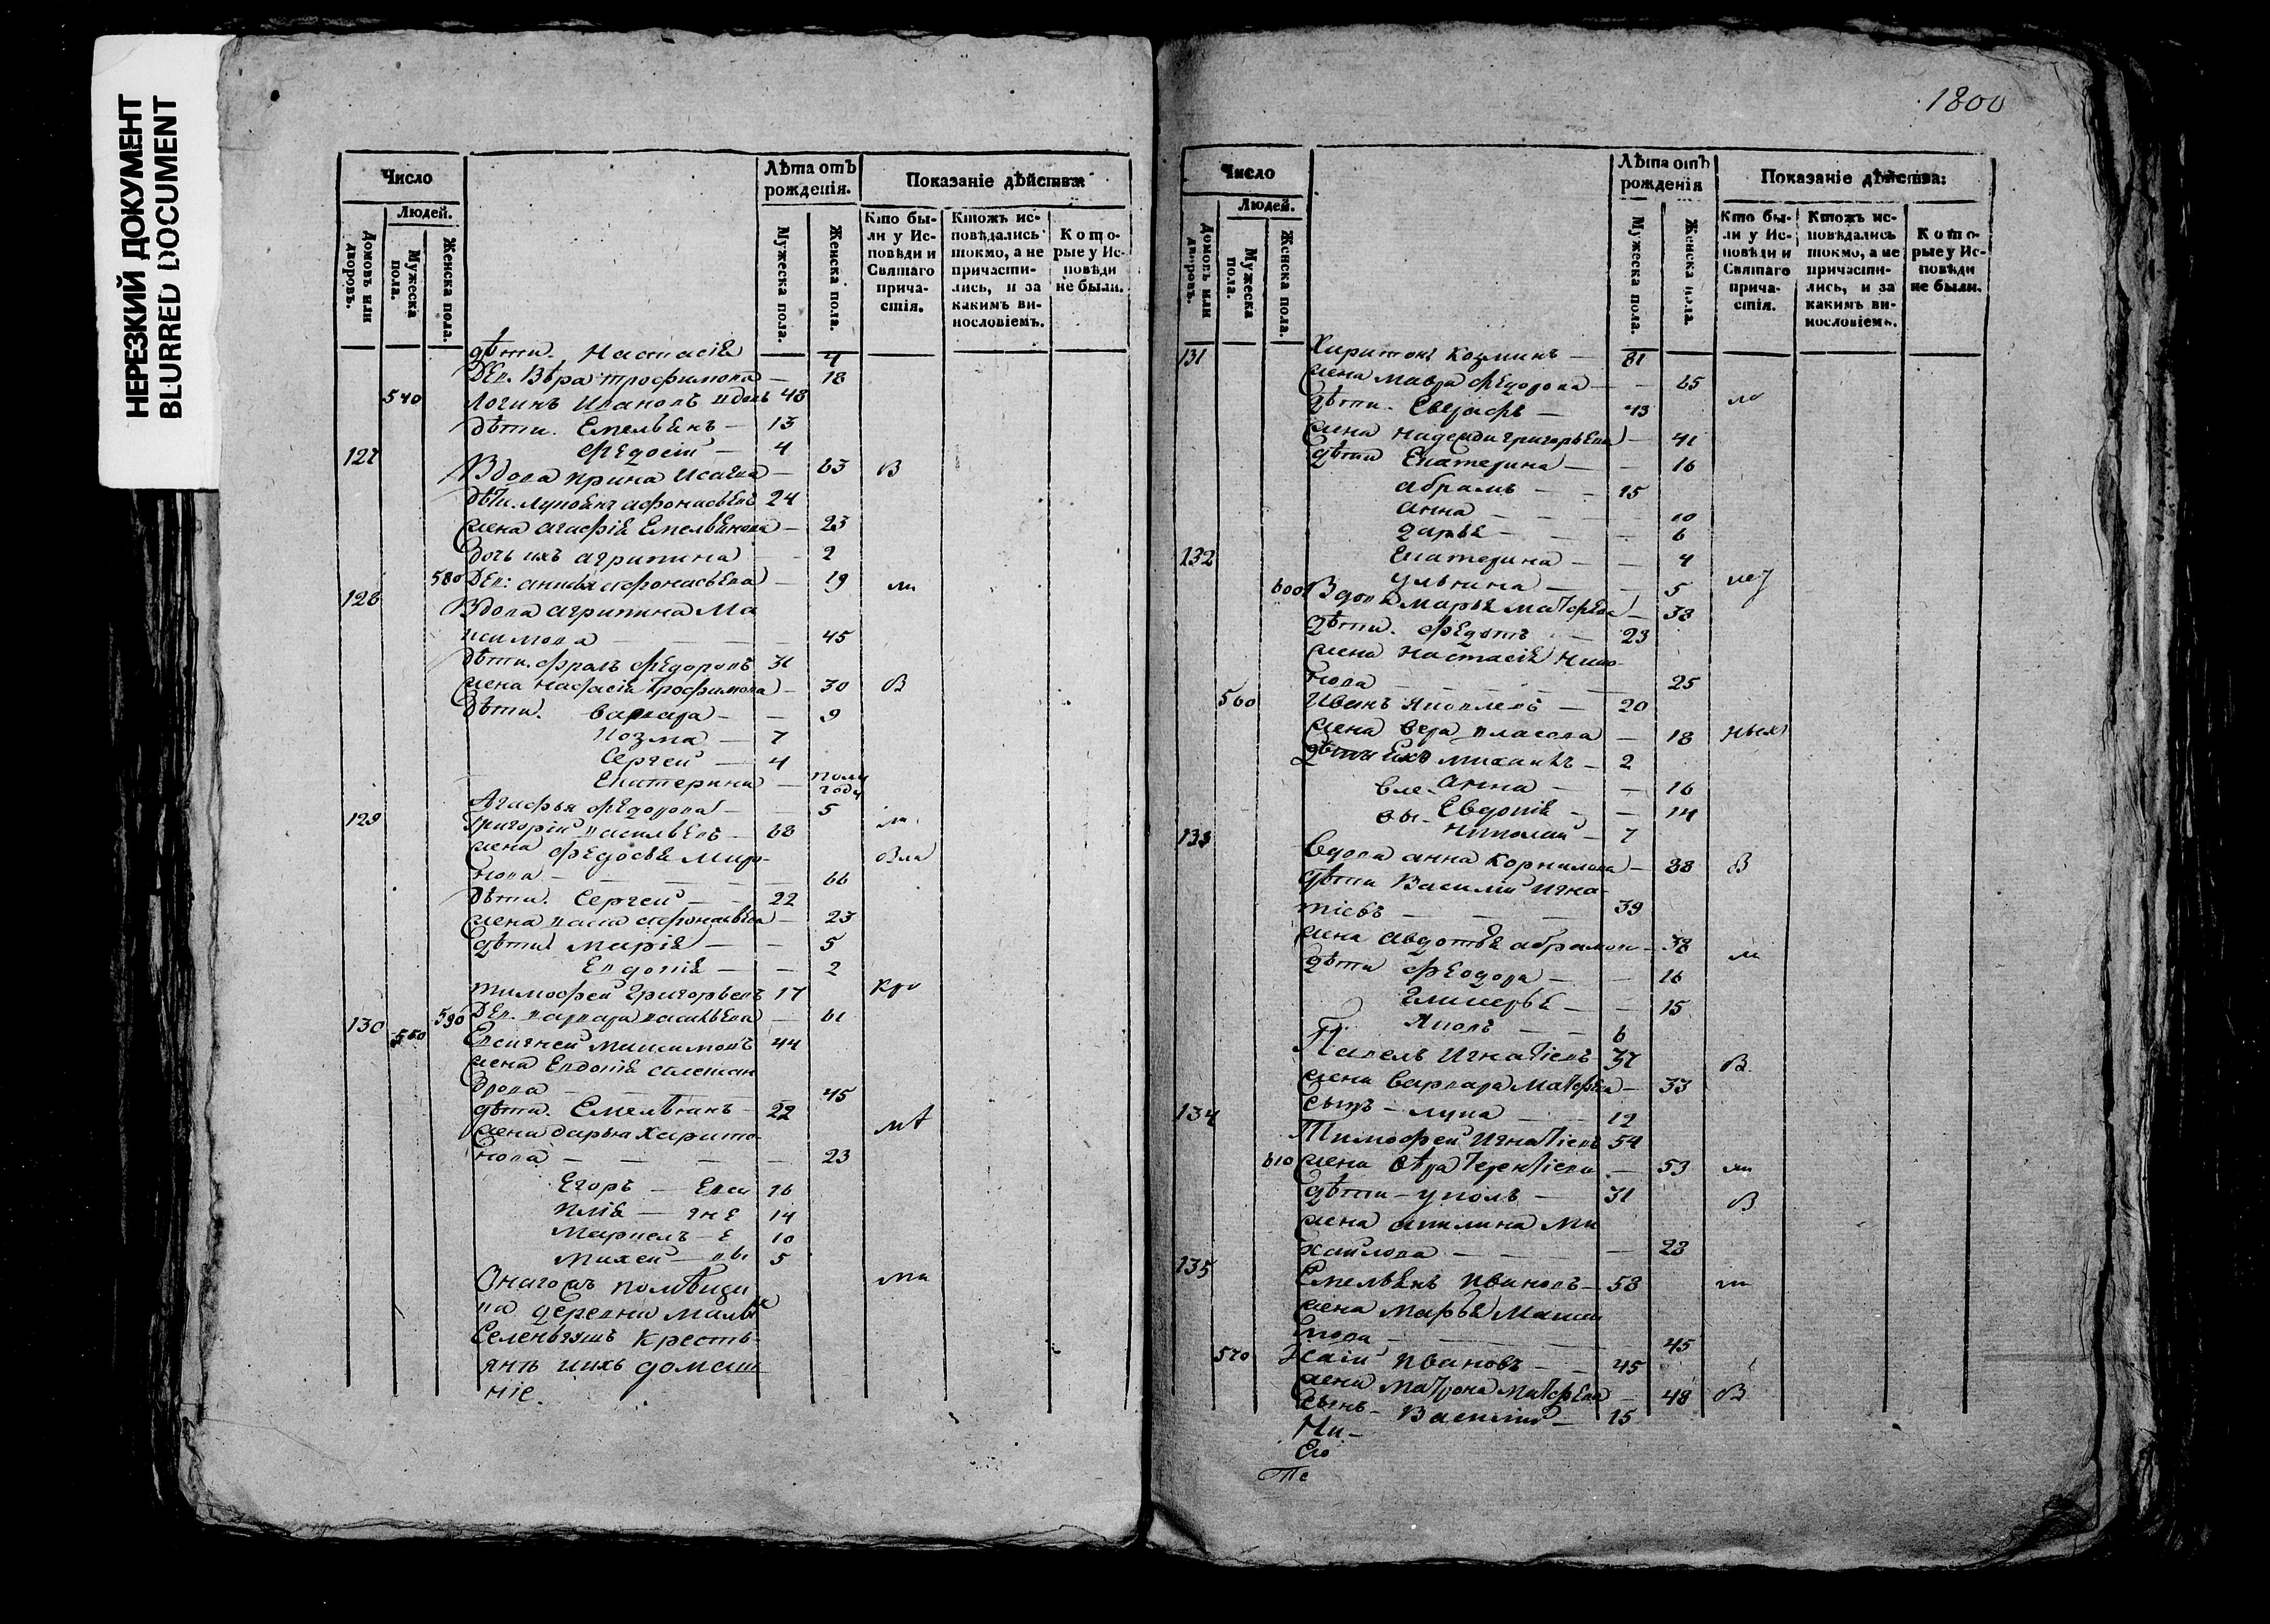 НЕРЕЗКИЙ ДОКУМЕНТ
BLURRED DOCUMENT
Число
Людей.
Домовъ или дворовъ.
Мужеска пола.
Женска пола.
Лѣта отъ рожденія.
Мужеска пола.
Женска пола.
Показаніе дѣйства:
Кто бы-
ли у Ис-
повѣди и
Святаго
прича-
стія.
Ктожъ ис-
повѣдались
токмо, а не
причасти-
лись, и за
какимъ ви-
нословіемъ.
Кото-
рые у Ис-
повѣди
не были.
дѣти. Настасіѣ 4
Дев. Вѣра трофимова — 18
540 Логинъ Ивановъ вдовъ 48
дѣти. Емельѣнъ — 13
Федосій — 4
127 Вдова Ирина Исаева — 63 В
дѣти. Афонасьевъ 24
жена агафіѣ Емельѣнова — 23
дочь ихъ агрипина — 2
580 Дев: афонасьева — 19
128 Вдова агрипина Ма
ксимова — 45
дѣти. Фролъ Федоровъ 31
жена трофимова — 30 В
дѣти. Варвара — 9
Козма — 7
Сергей — 4
Екатерина — полу году
Агафья федорова — 5
129 Григорій васильевъ — 68
жена Федосьѣ Миро-
нова — 66
дѣти. Сергей — 22
жена афонасьева — 23
дѣти Маріѣ — 5
Евдокіѣ — 2
тимофей Григорьевъ 17
590 Дев. варвара васильева — 61
130 550 Евсигней Максимовъ 44
жена Евдокіѣ алексан
дрова — 45
дѣти. Емельѣнъ — 22
жена дарья Харито-
нова — 23
Егоръ — Евси 16
Иліѣ — гне 14
Маркелъ — е 10
Михей — вы 5
Онаго жъ помѣщи
ка деревни Малы
Селеньгушъ Кресть-
янъ ихъ домаш
ніе.
1800
Число
Людей.
Домовъ или дворовъ.
Мужеска пола.
Женска пола.
Лѣта отъ рожденія
Мужеска пола.
Женска пола.
Показаніе дѣйства:
Кто бы-
ли у Ис-
повѣди и
Святаго
прича-
стія.
Ктожъ ис-
повѣдались
токмо, а не
причасти-
лись, и за
какимъ ви-
нословіемъ.
Кото-
рые у Ис-
повѣди
не были.
131 Харитонъ Козминъ — 81
жена мавра федорова — 65
дѣти. — 43
жена григорьева — 41
дѣти Екатерина — 16
абрамъ — 15
анна — 10
дарьѣ — 6
132 Екатерина — 4
ульяна — 5
600 Вдова Марьѣ матфева — 38
дѣти. Федотъ — 23
жена Настасіѣ Нико-
нова — 25
560 Иванъ Яковлевъ — 20
жена вера власова — 18
дѣти Ихъ михаилъ — 2
анна — 16
Евдокіѣ — 14
Николай — 7
133 вдова анна Корнилова — 88 В
дѣти Василій Игна-
тіевъ — 39
жена авдотьѣ абрамов — 38
дѣти Феодора — 16
гликерьѣ — 15
Яковъ — 6
Павелъ Игнатіевъ — 37 В
жена варвара матфева — 33
134 сынъ — лука — 12
Тимофей Игнатіевъ 54
610 жена вѣра терентіева — 53
дѣти — 31 В
жена акилина ми
хайлова — 28
135 Емельѣнъ Ивановъ — 58
жена Марьѣ Макси
мова — 45
570 Исай Ивановъ — 45
жена матрона матфева — 48 В
сынъ — Василій — 15